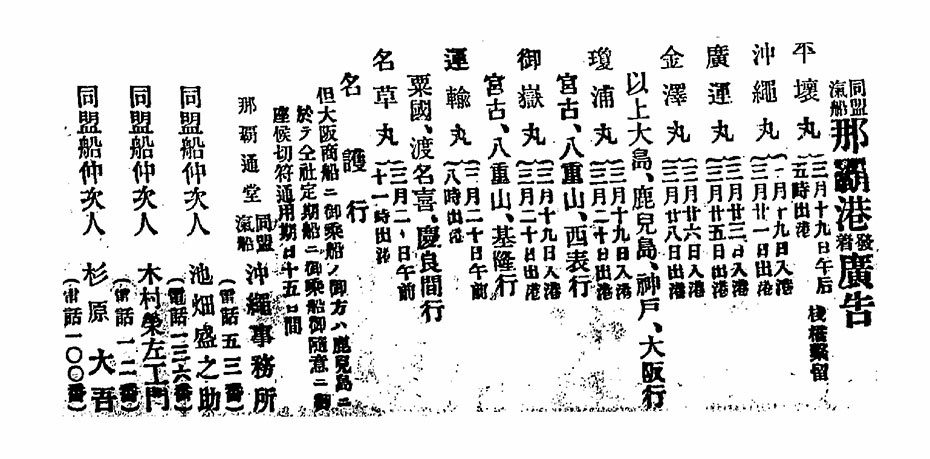 同盟汽船 那覇港發着廣告
平壤丸 三月十九日午后五時出港 棧橋繫留
沖繩丸 三月十九日入港 三月廿一日出港
廣運丸 三月廿三日入港 三月廿五日出港
金澤丸 三月廿六日入港 三月廿八日出港
以上大島、鹿兒島、神戸、大阪行
瓊浦丸 三月十九日入港 三月二十日出港
宮古、八重山、西表行
御嶽丸 三月十九日入港 三月二十日出港
宮古、八重山、基隆行
運輸丸 三月二十日午前八時出港
粟國、渡名喜、慶良間行
名草丸 三月二 日午前十一時出港
名護行
但大阪商船ニ御乘船ノ御方ハ鹿兒島ニ
於テ仝社定期船ニ御乘船御隨意ニ
座候切符通用期日十五日間
那覇通堂 同盟汽船 沖繩事務所
(電話五三番)
同盟船仲次人 池畑盛之助
(電話一三六番)
同盟船仲次人 木村榮左工門
(電話一二番)
同盟船仲次人 杉原大吾
(電話一〇〇番)